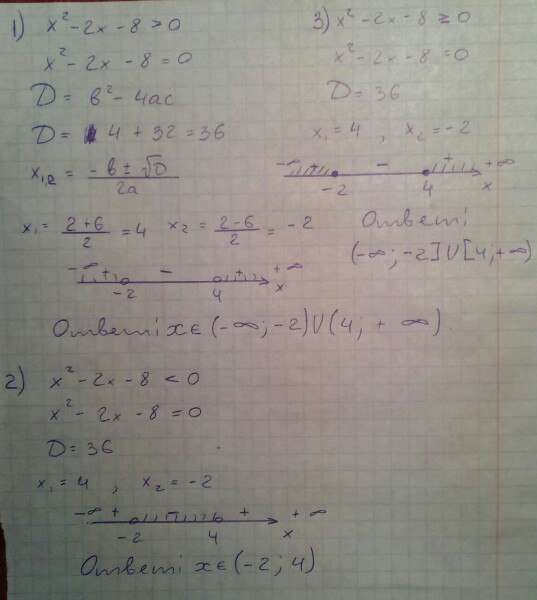 1) x² - 2x - 8 > 0
x² - 2x - 8 = 0
D = b² - 4ac
D = 4 + 32 = 36
x₁,₂ = (-b ± √D) / 2a
x₁ = (2+6)/2 = 4 x₂ = (2-6)/2 = -2
-∞ + - + +∞
-2 4 x
Ответ: x ∈ (-∞; -2) ∪ (4; + ∞)
2) x² - 2x - 8 < 0
x² - 2x - 8 = 0
D = 36
x₁ = 4 , x₂ = -2
-∞ + + +∞
-2 4 x
Ответ: x ∈ (-2; 4)
3) x² - 2x - 8 ≥ 0
x² - 2x - 8 = 0
D = 36
x₁ = 4 , x₂ = -2
-∞ + - + +∞
-2 4 x
Ответ:
(-∞; -2] ∪ [4; +∞)